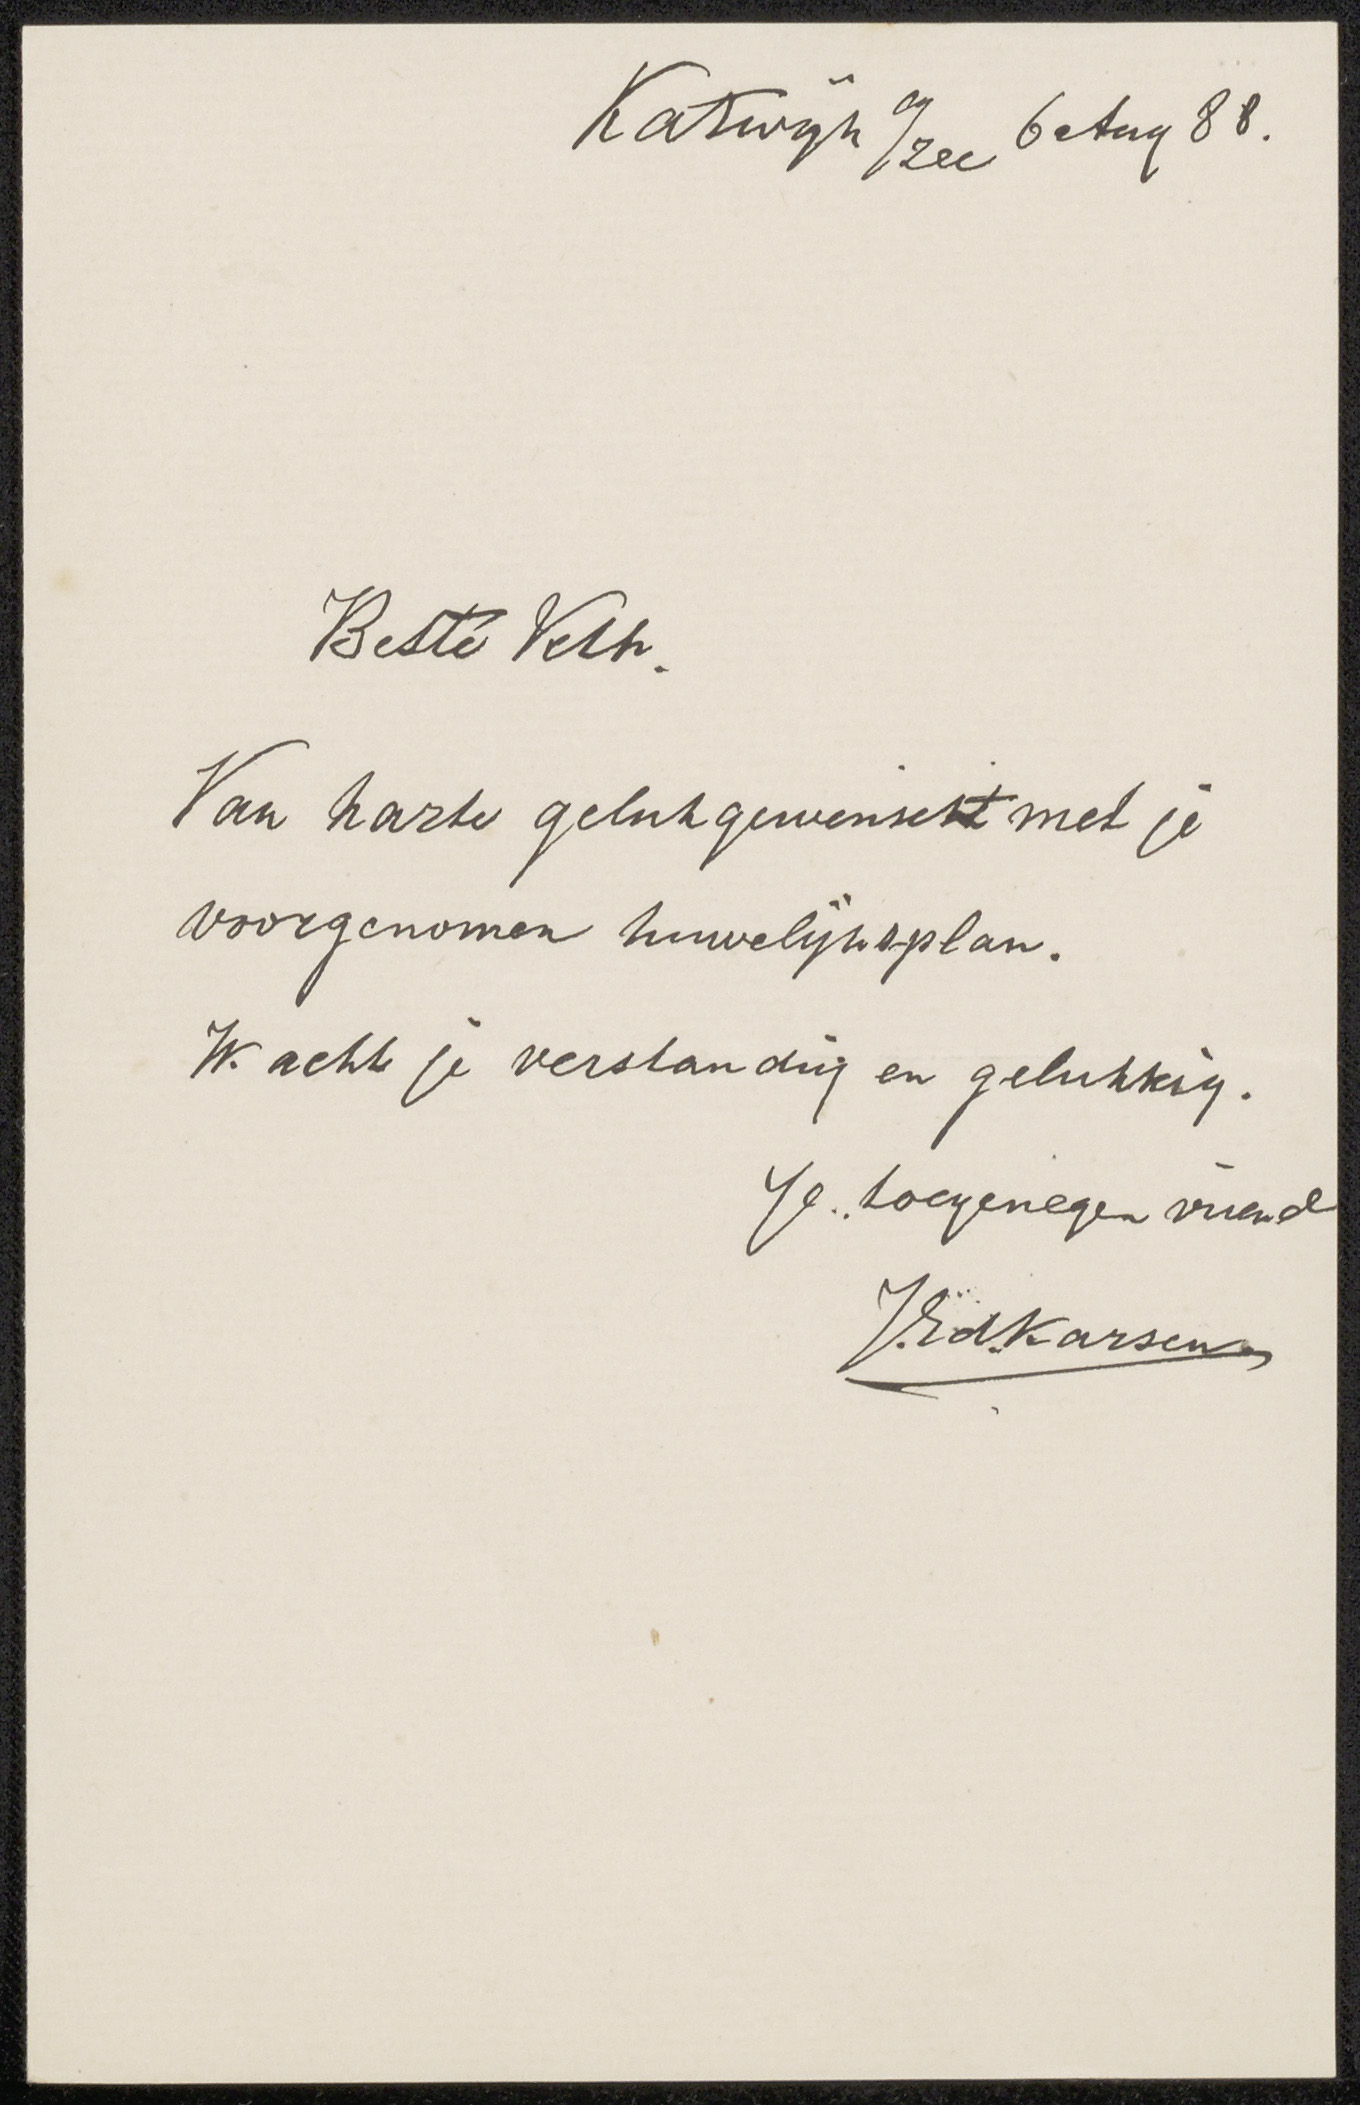 Katwijk a/zee 6 Aug 88.
Beste Veth.
Van harte gelukgewenscht met je
voorgenomen huwelijksplan.
K. acht je verstandig en gelukkig.
Je toegenegen vriend
J. Ed. Karsen